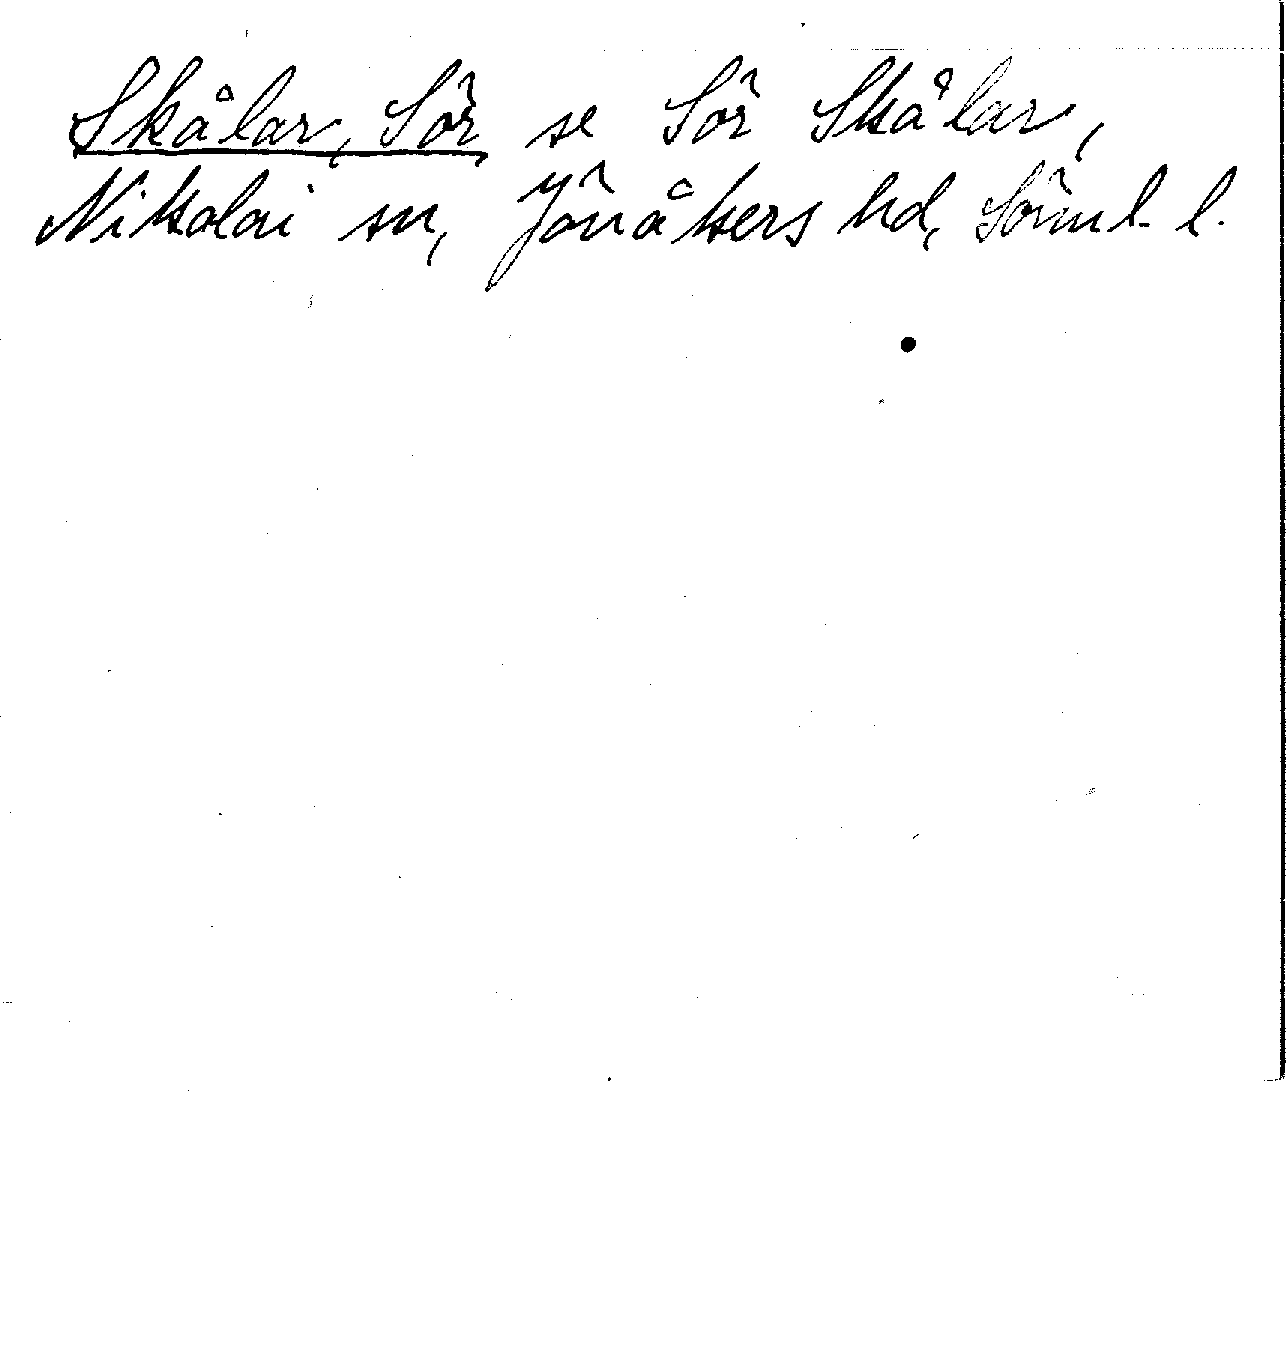 Skålar, Sör se Sör Skålar,
Nikolai sn, Jönåkers hd, Sörml. l.